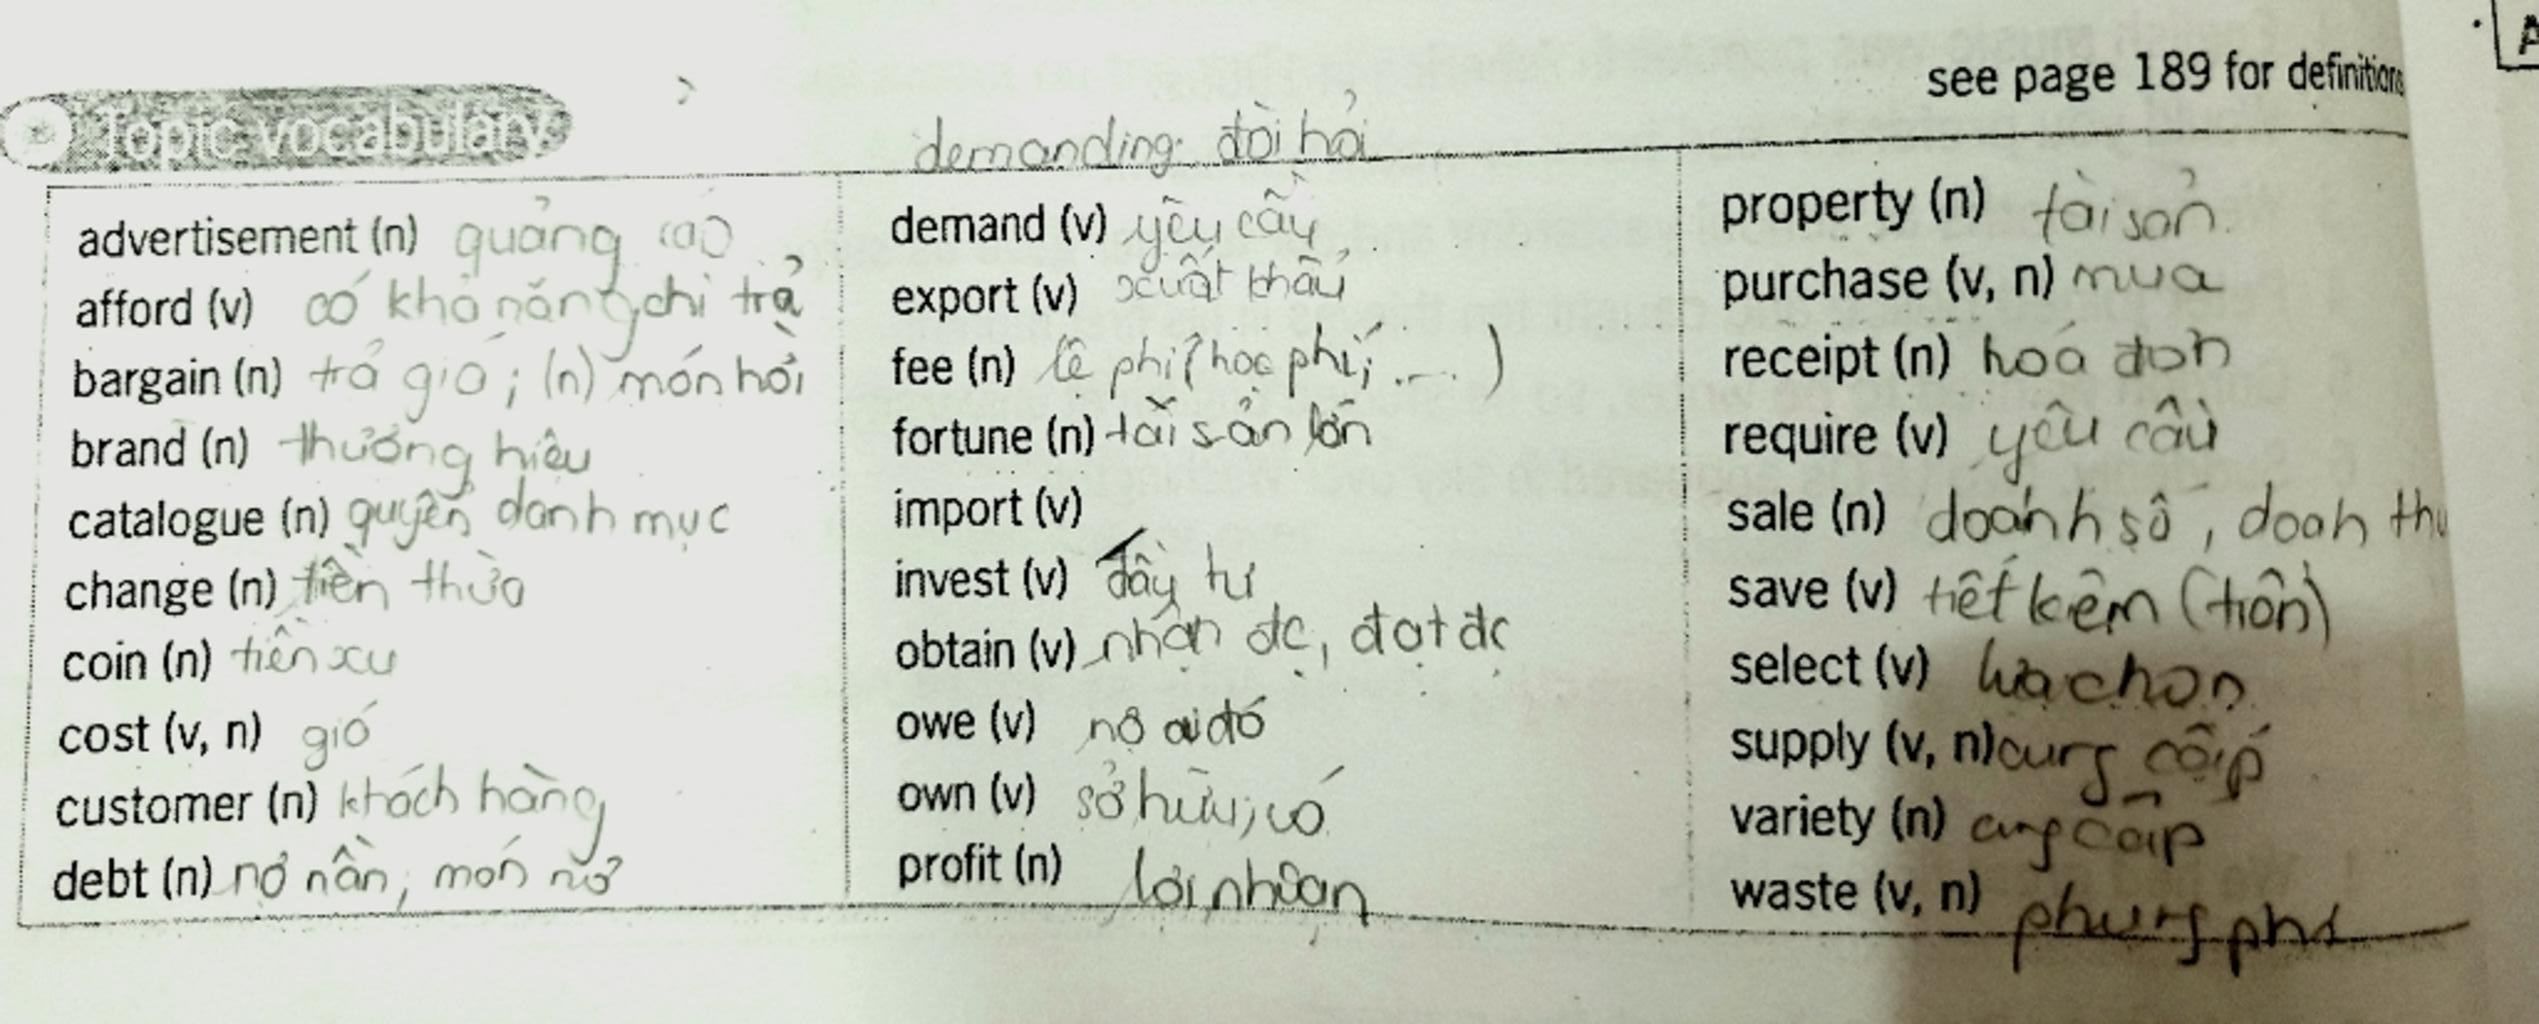 see page 189 for definitions
Topic vocabulary
demanding: đòi hỏi
advertisement (n) quảng cáo
afford (v) có khả năng chi trả
bargain (n) trả giá; (n) món hời
brand (n) thương hiệu
catalogue (n) quyển danh mục
change (n) tiền thừa
coin (n) tiền xu
cost (v, n) giá
customer (n) khách hàng
debt (n) nợ nần, món nợ
demand (v) yêu cầu
export (v) xuất khẩu
fee (n) lệ phí (học phí, ....)
fortune (n) tài sản lớn
import (v)
invest (v) đầu tư
obtain (v) nhận đc, đạt đc
owe (v) nợ ai đó
own (v) sở hữu, có
profit (n) lợi nhuận
property (n) tài sản
purchase (v, n) mua
receipt (n) hoá đơn
require (v) yêu cầu
sale (n) doanh số, doanh thu
save (v) tiết kiệm (tiền)
select (v) lựa chọn
supply (v, n) cung cấp
variety (n) cung cấp
waste (v, n) phung phí
A